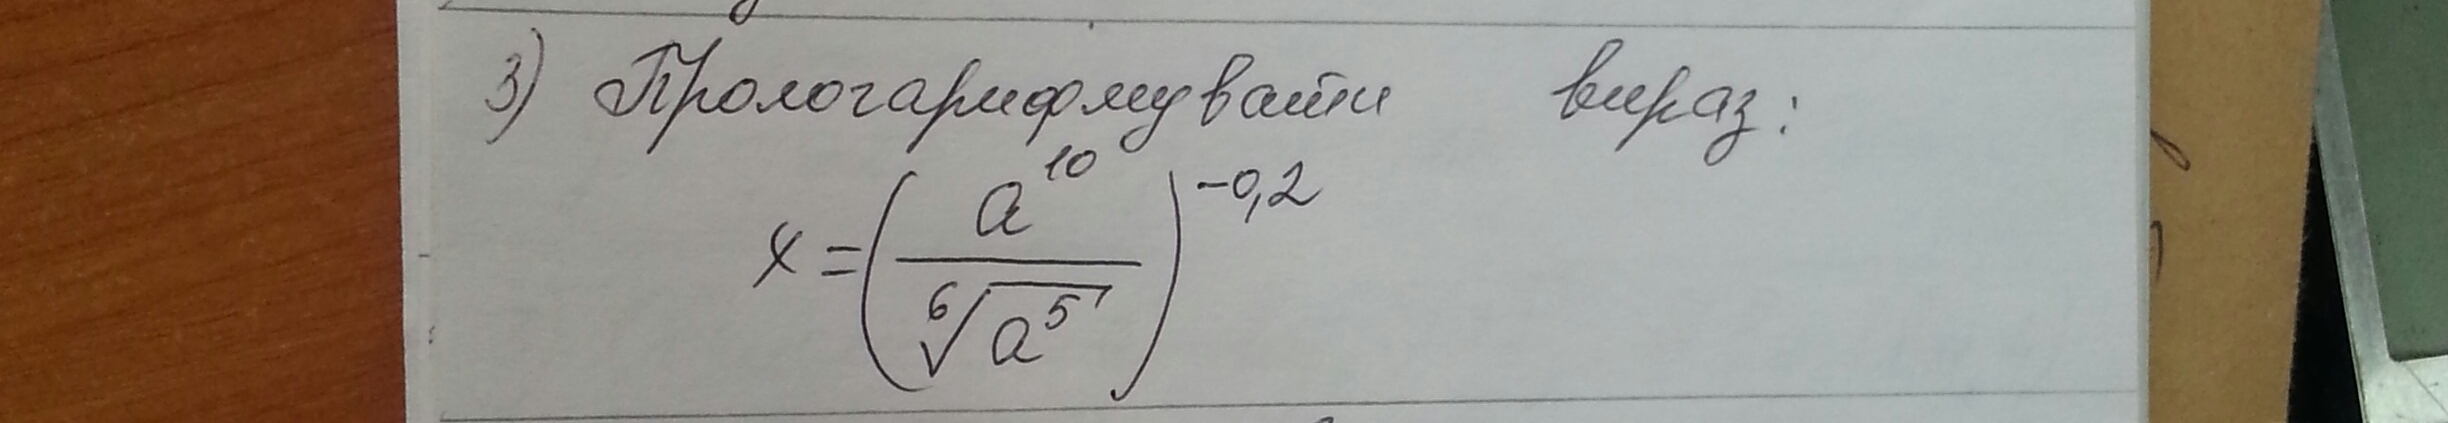 3) Прологарифмувати вираз:
x = (a^10 / ⁶√a^5)^-0,2